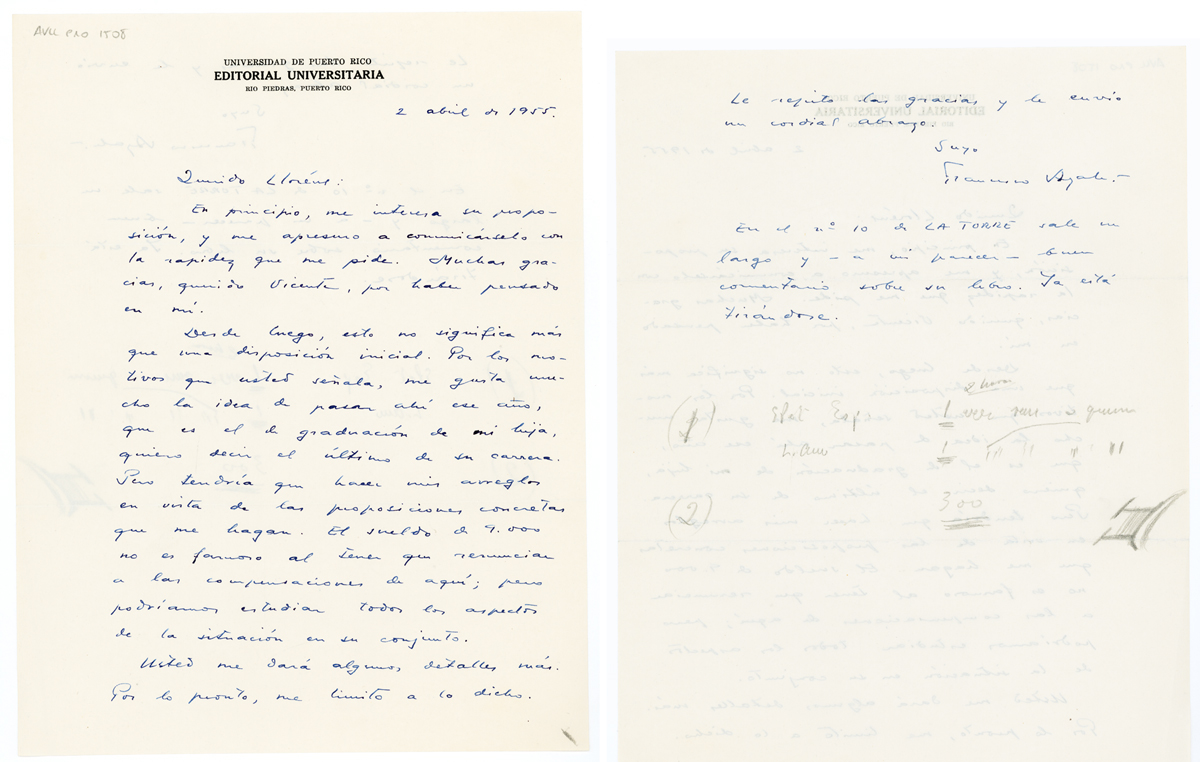 AVLL PRO 1508
UNIVERSIDAD DE PUERTO RICO
EDITORIAL UNIVERSITARIA
RIO PIEDRAS, PUERTO RICO
2 abril de 1955.
Querido Lloréns:
En principio, me interesa su propo-
sición, y me apresuro a comunicárselo con
la rapidez que me pide. Muchas gra-
cias, querido Vicente, por haber pensado
en mí.
Desde luego, esto no significa más
que una disposición inicial. Por los mo-
tivos que usted señala, me gusta mu-
cho la idea de pasar ahí ese año,
que es el de graduación de mi hija,
quiero decir el último de su carrera.
Pero tendría que hacer mis arreglos
en vista de las proposiciones concretas
que me hagan. El sueldo de 9.000
no es famoso al tener que renunciar
a las compensaciones de aquí; pero
podríamos estudiar todos los aspectos
de la situación en su conjunto.
Usted me dará algunos detalles más.
Por lo pronto, me limito a lo dicho.
Le repito las gracias y le envío
un cordial abrazo.
Suyo
Francisco Ayala.-
En el nº 10 de LA TORRE sale un
largo y - a mi parecer - buen
comentario sobre su libro. Ya está
tirándose.
(1)
(2) 300